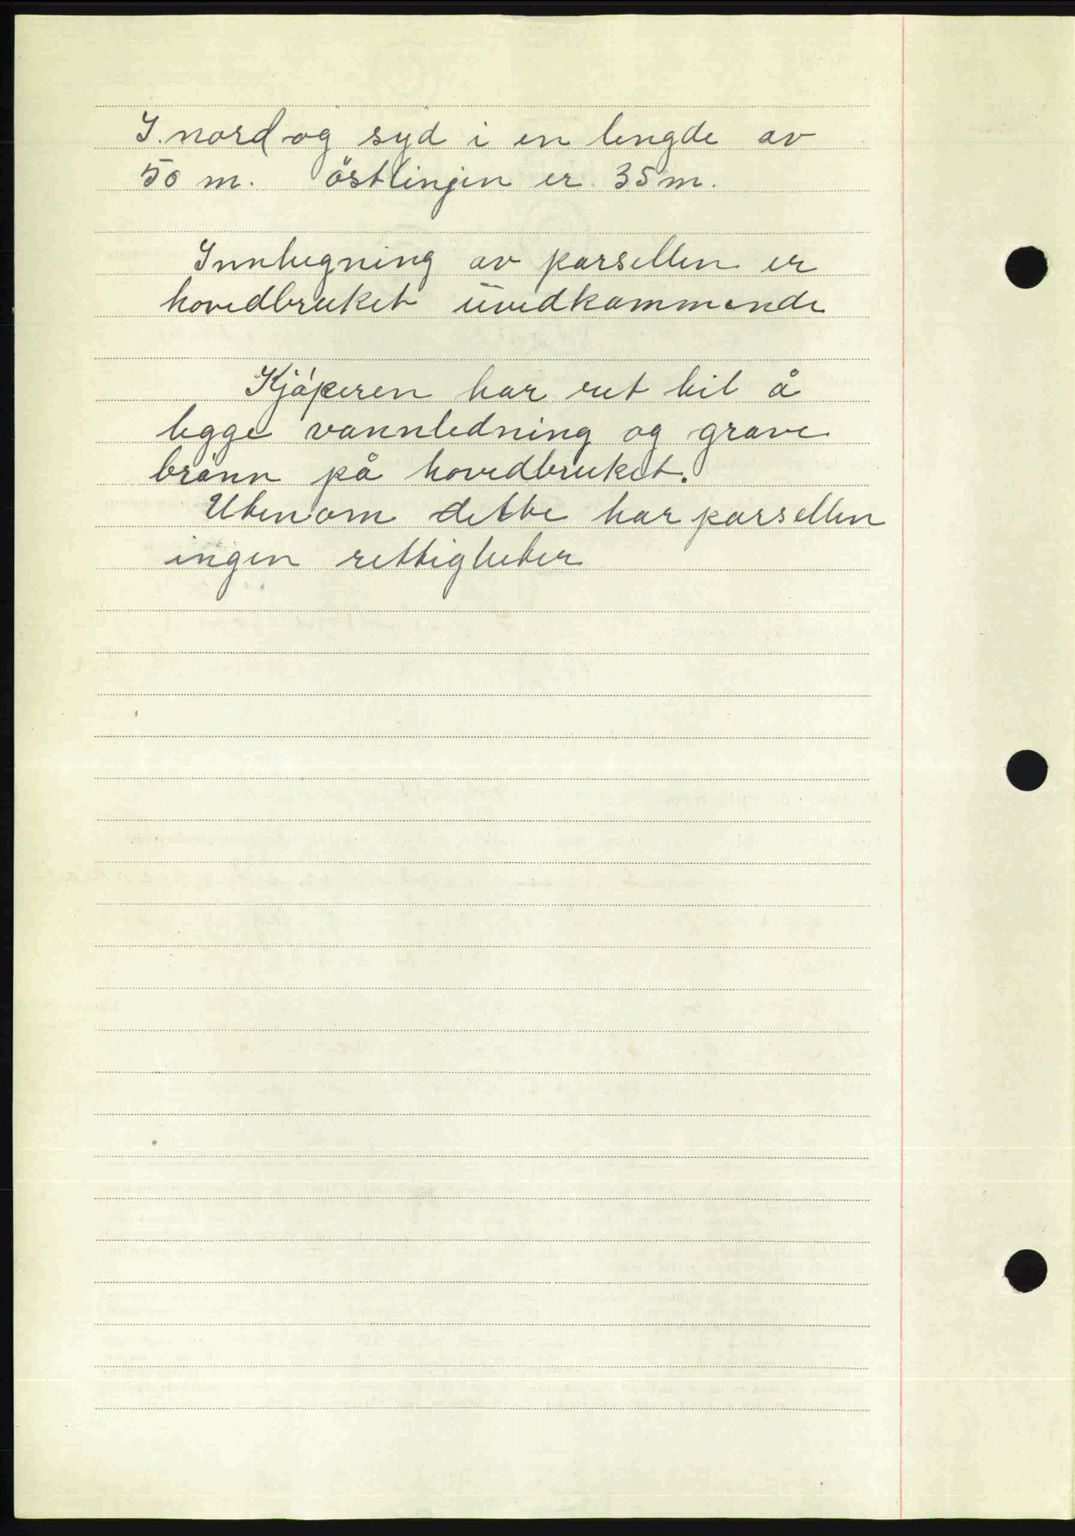 I. nord og syd i en lengde av
50 m. östlinjen er 35 m.
Innhegning av parsellen er
hovedbruket uvedkommende
Kjöperen har ret til å
legge vannledning og grave
brönn på hovedbruket.
Utenom dette har parsellen
ingen rettigheter